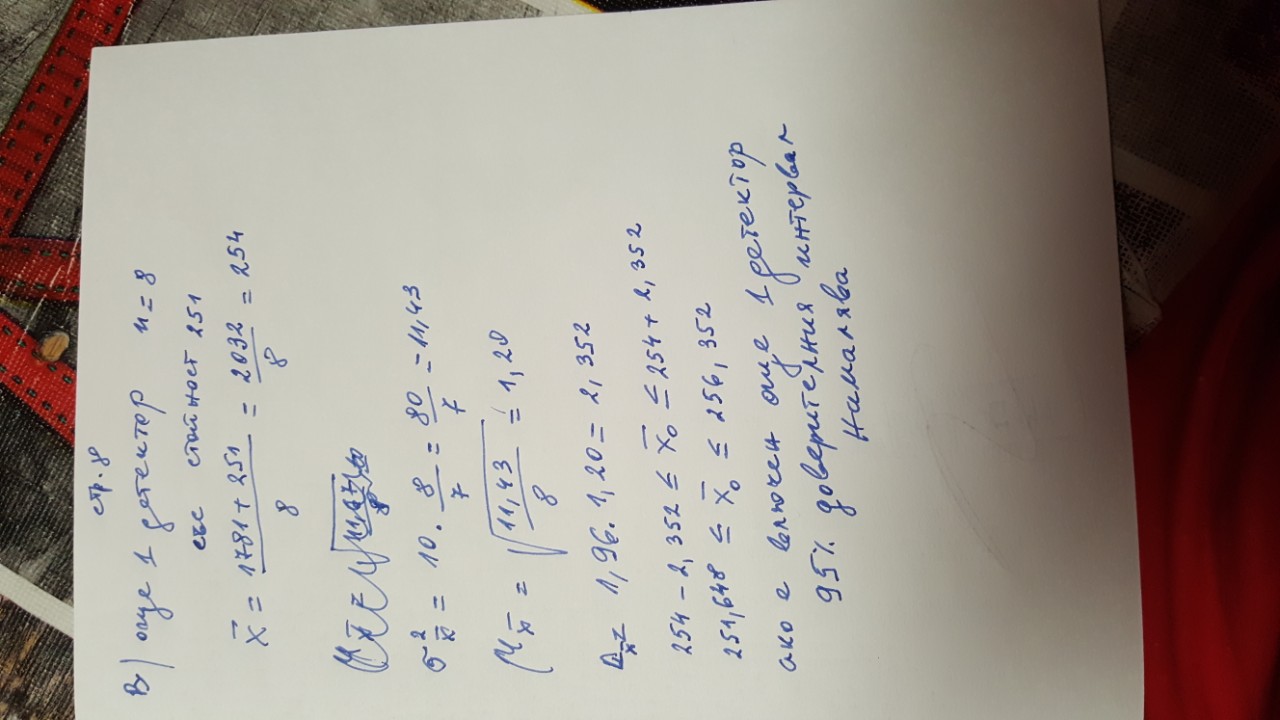 стр. 8
В) още 1 детектор n = 8
със стойност 251
x̄ = (1781 + 251)/8 = 2032/8 = 254
σ²x̄ = 10 . 8/7 = 80/7 = 11,43
μx̄ = √(11,43/8) = 1,20
Δx̄ = 1,96 . 1,20 = 2,352
254 – 2,352 ≤ x̄₀ ≤ 254 + 2,352
251,648 ≤ x̄₀ ≤ 256,352
ако е включен още 1 детектор
95% доверителния интервал
намалява